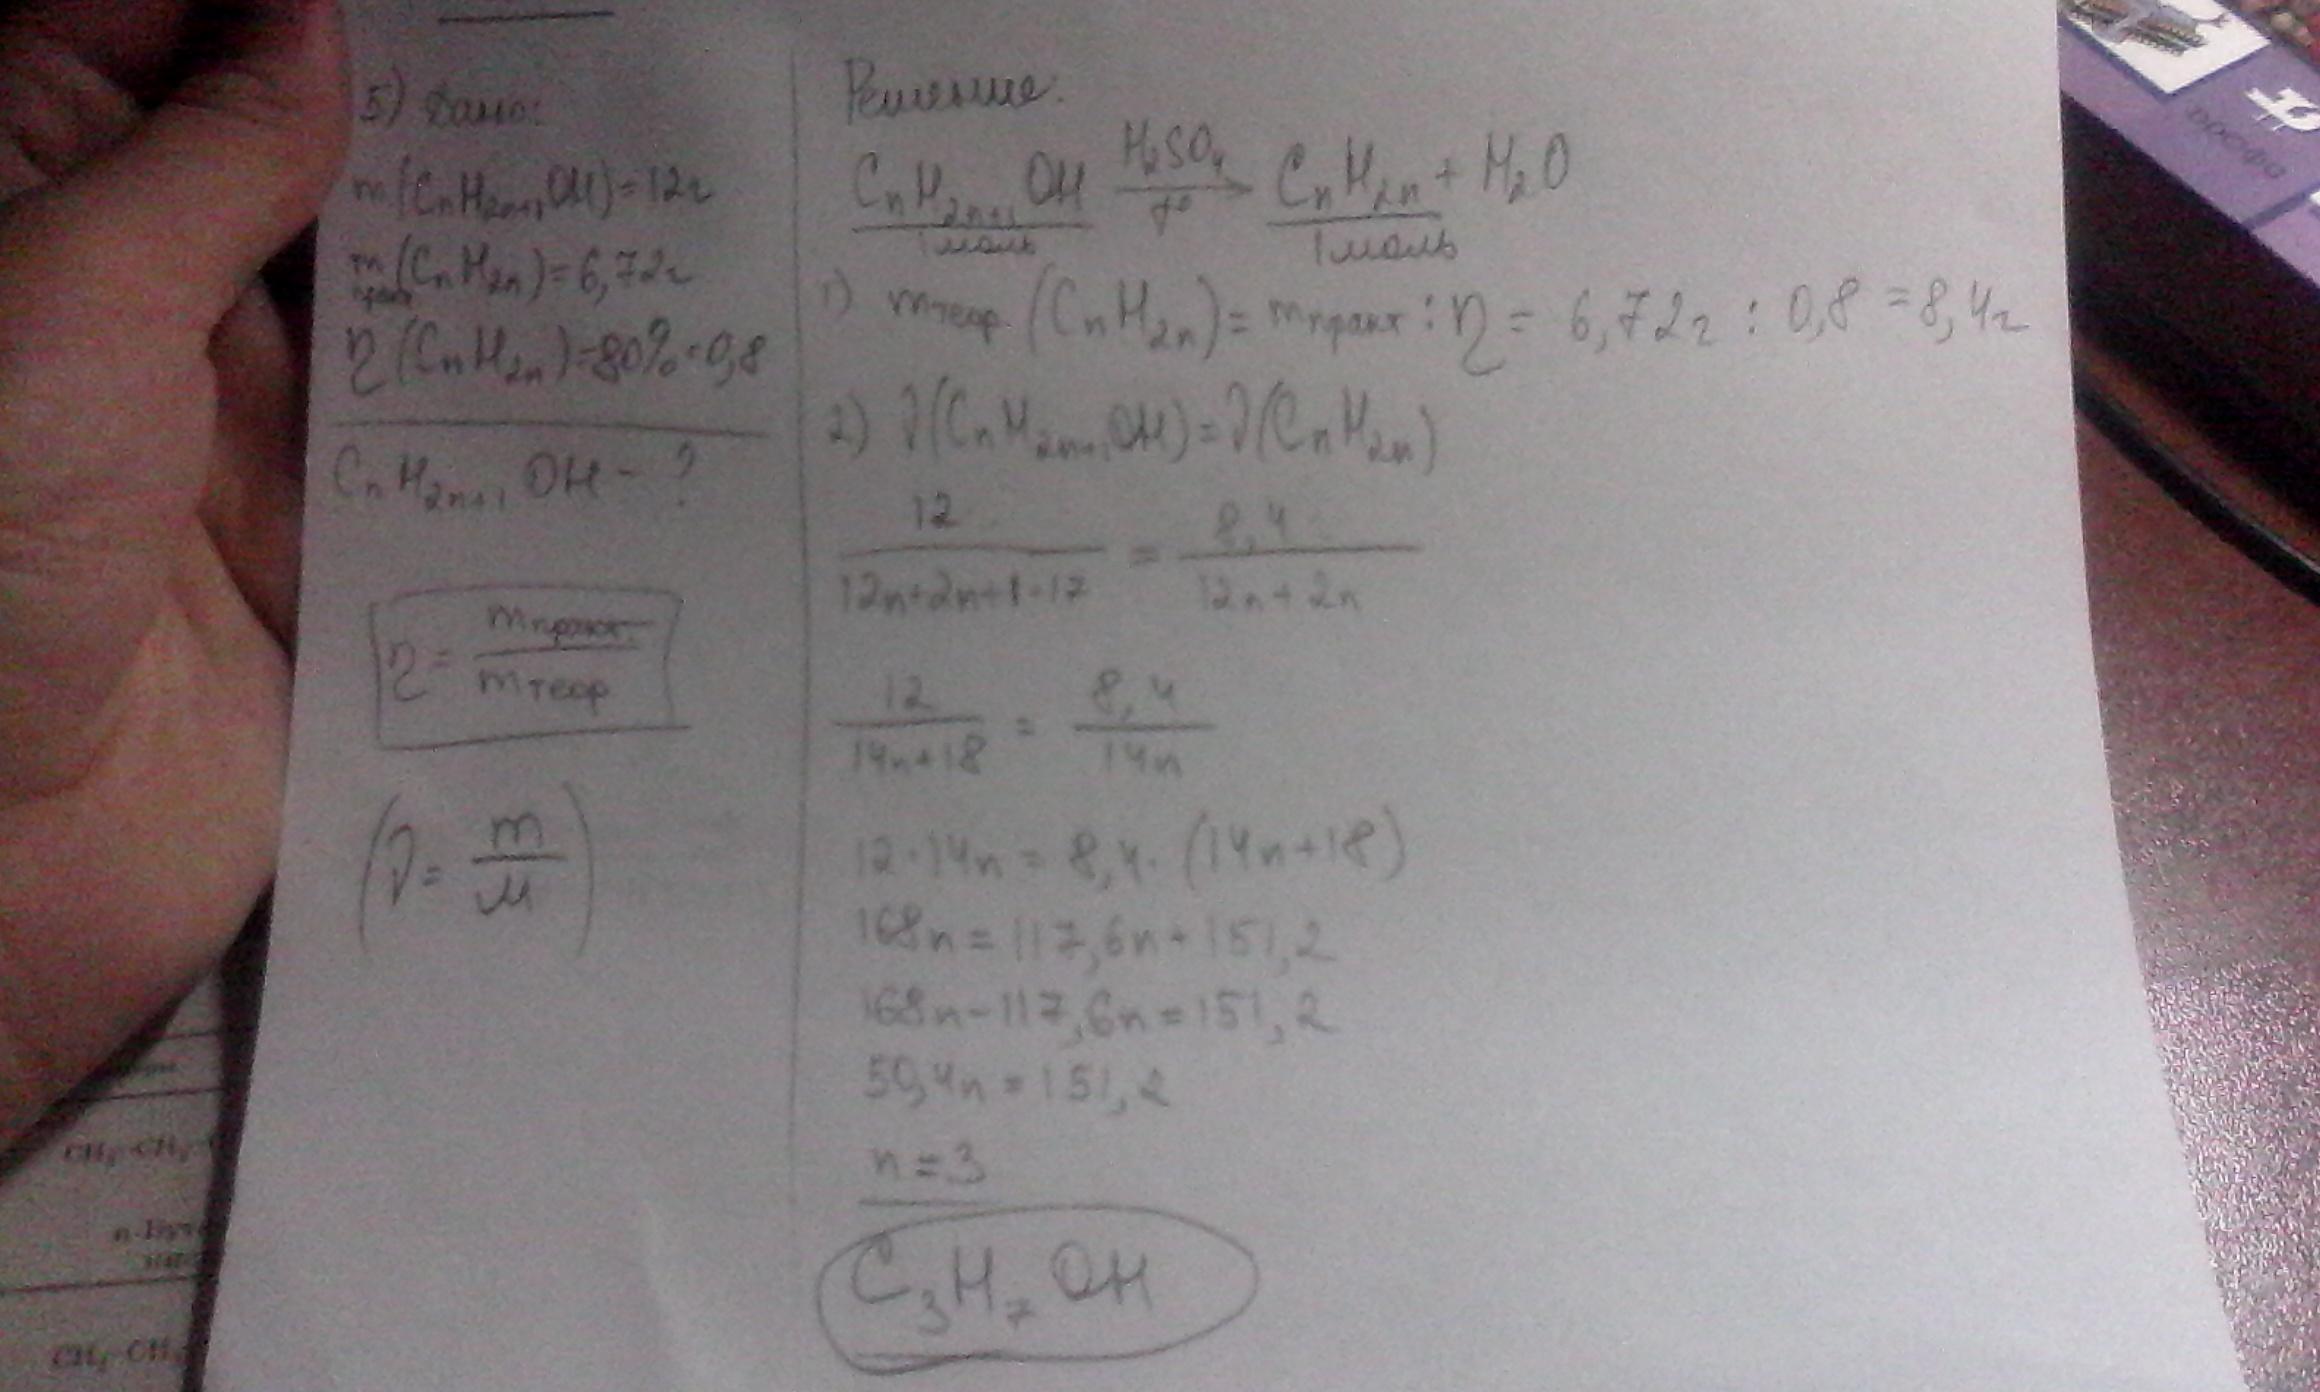 5) Дано:
m(CnH2n+1OH)=12г
mпракт(CnH2n)=6,72г
η(CnH2n)=80%=0,8
CnH2n+1OH-?
η=mпракт./mтеор
(ν=m/M)
Решение:
CnH2n+1OH H2SO4/t° → CnH2n+H2O
1 моль 1 моль
1) mтеор.(CnH2n)=mпракт:η=6,72г:0,8=8,4г
2) ν(CnH2n+1OH)=ν(CnH2n)
12/(12n+2n+1+17)=8,4/(12n+2n)
12/(14n+18)=8,4/14n
12·14n=8,4·(14n+18)
168n=117,6n+151,2
168n-117,6n=151,2
50,4n=151,2
n=3
C3H7OH
CH3-CH2-